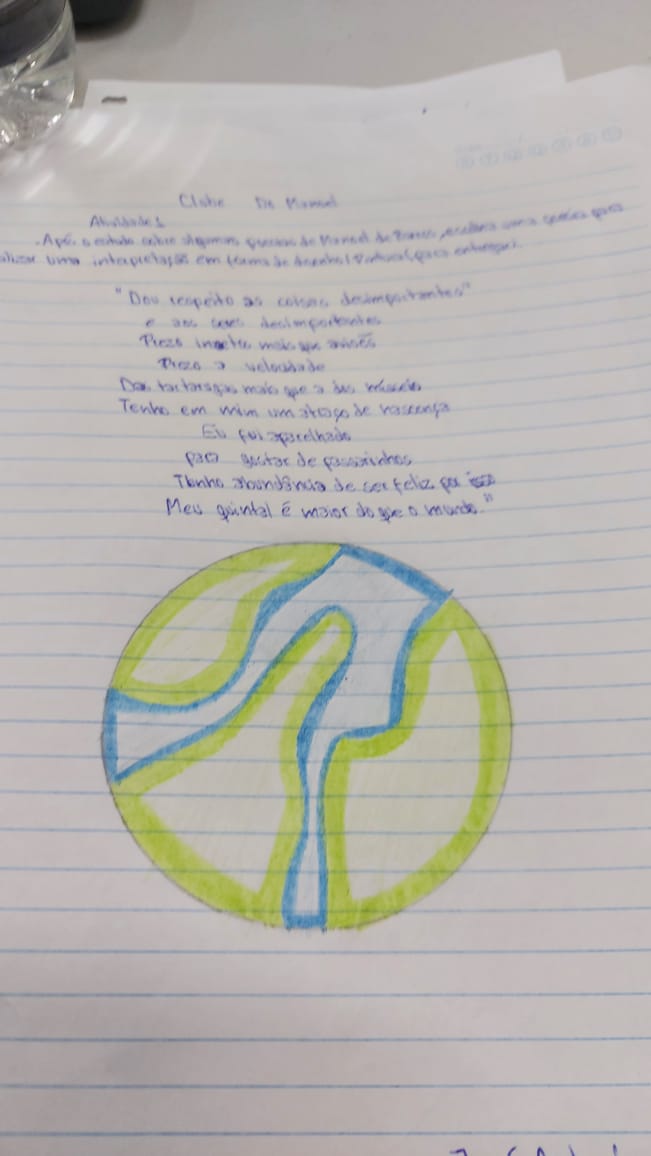 Clube De Manoel
Atividade 1
. Após o estudo sobre algumas poesias de Manoel de Barros, escolha uma poesia para
uma interpretação em forma de desenho/Pintura (para entregar).
"Dou respeito as coisas desimportantes"
e aos seres desimportantes
Prezo insetos mais que aviões
Prezo a velocidade
Das tartarugas mais que a dos mísseis
Tenho em mim um atraso de nascença
Eu fui aparelhado
para gostar de passarinhos
Tenho abundância de ser feliz por isso
Meu quintal é maior do que o mundo."